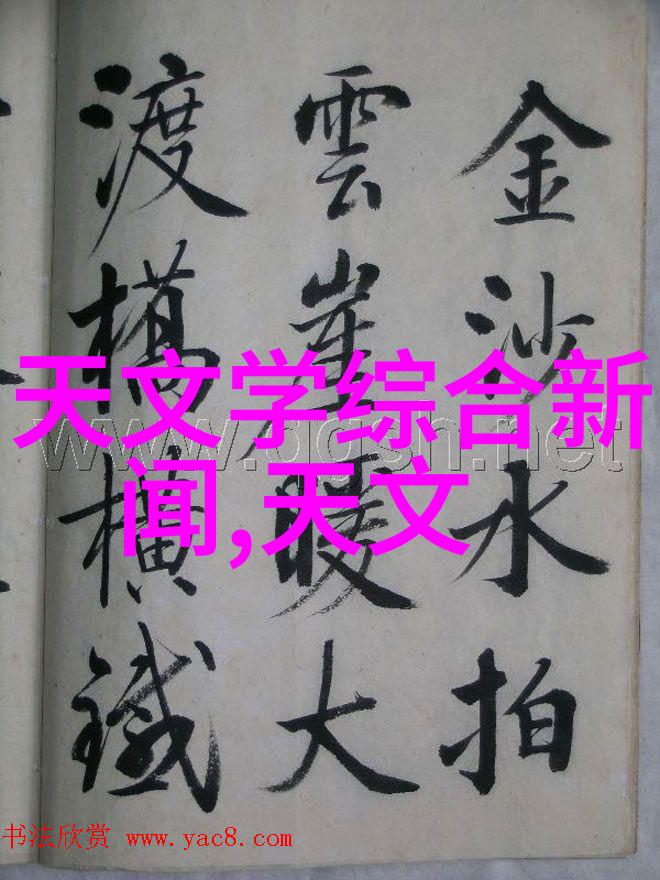 金沙水拍
雲崖暖大
渡橋橫鐵
天文学综合新
闻,天文
www.yac8.com
书法欣赏